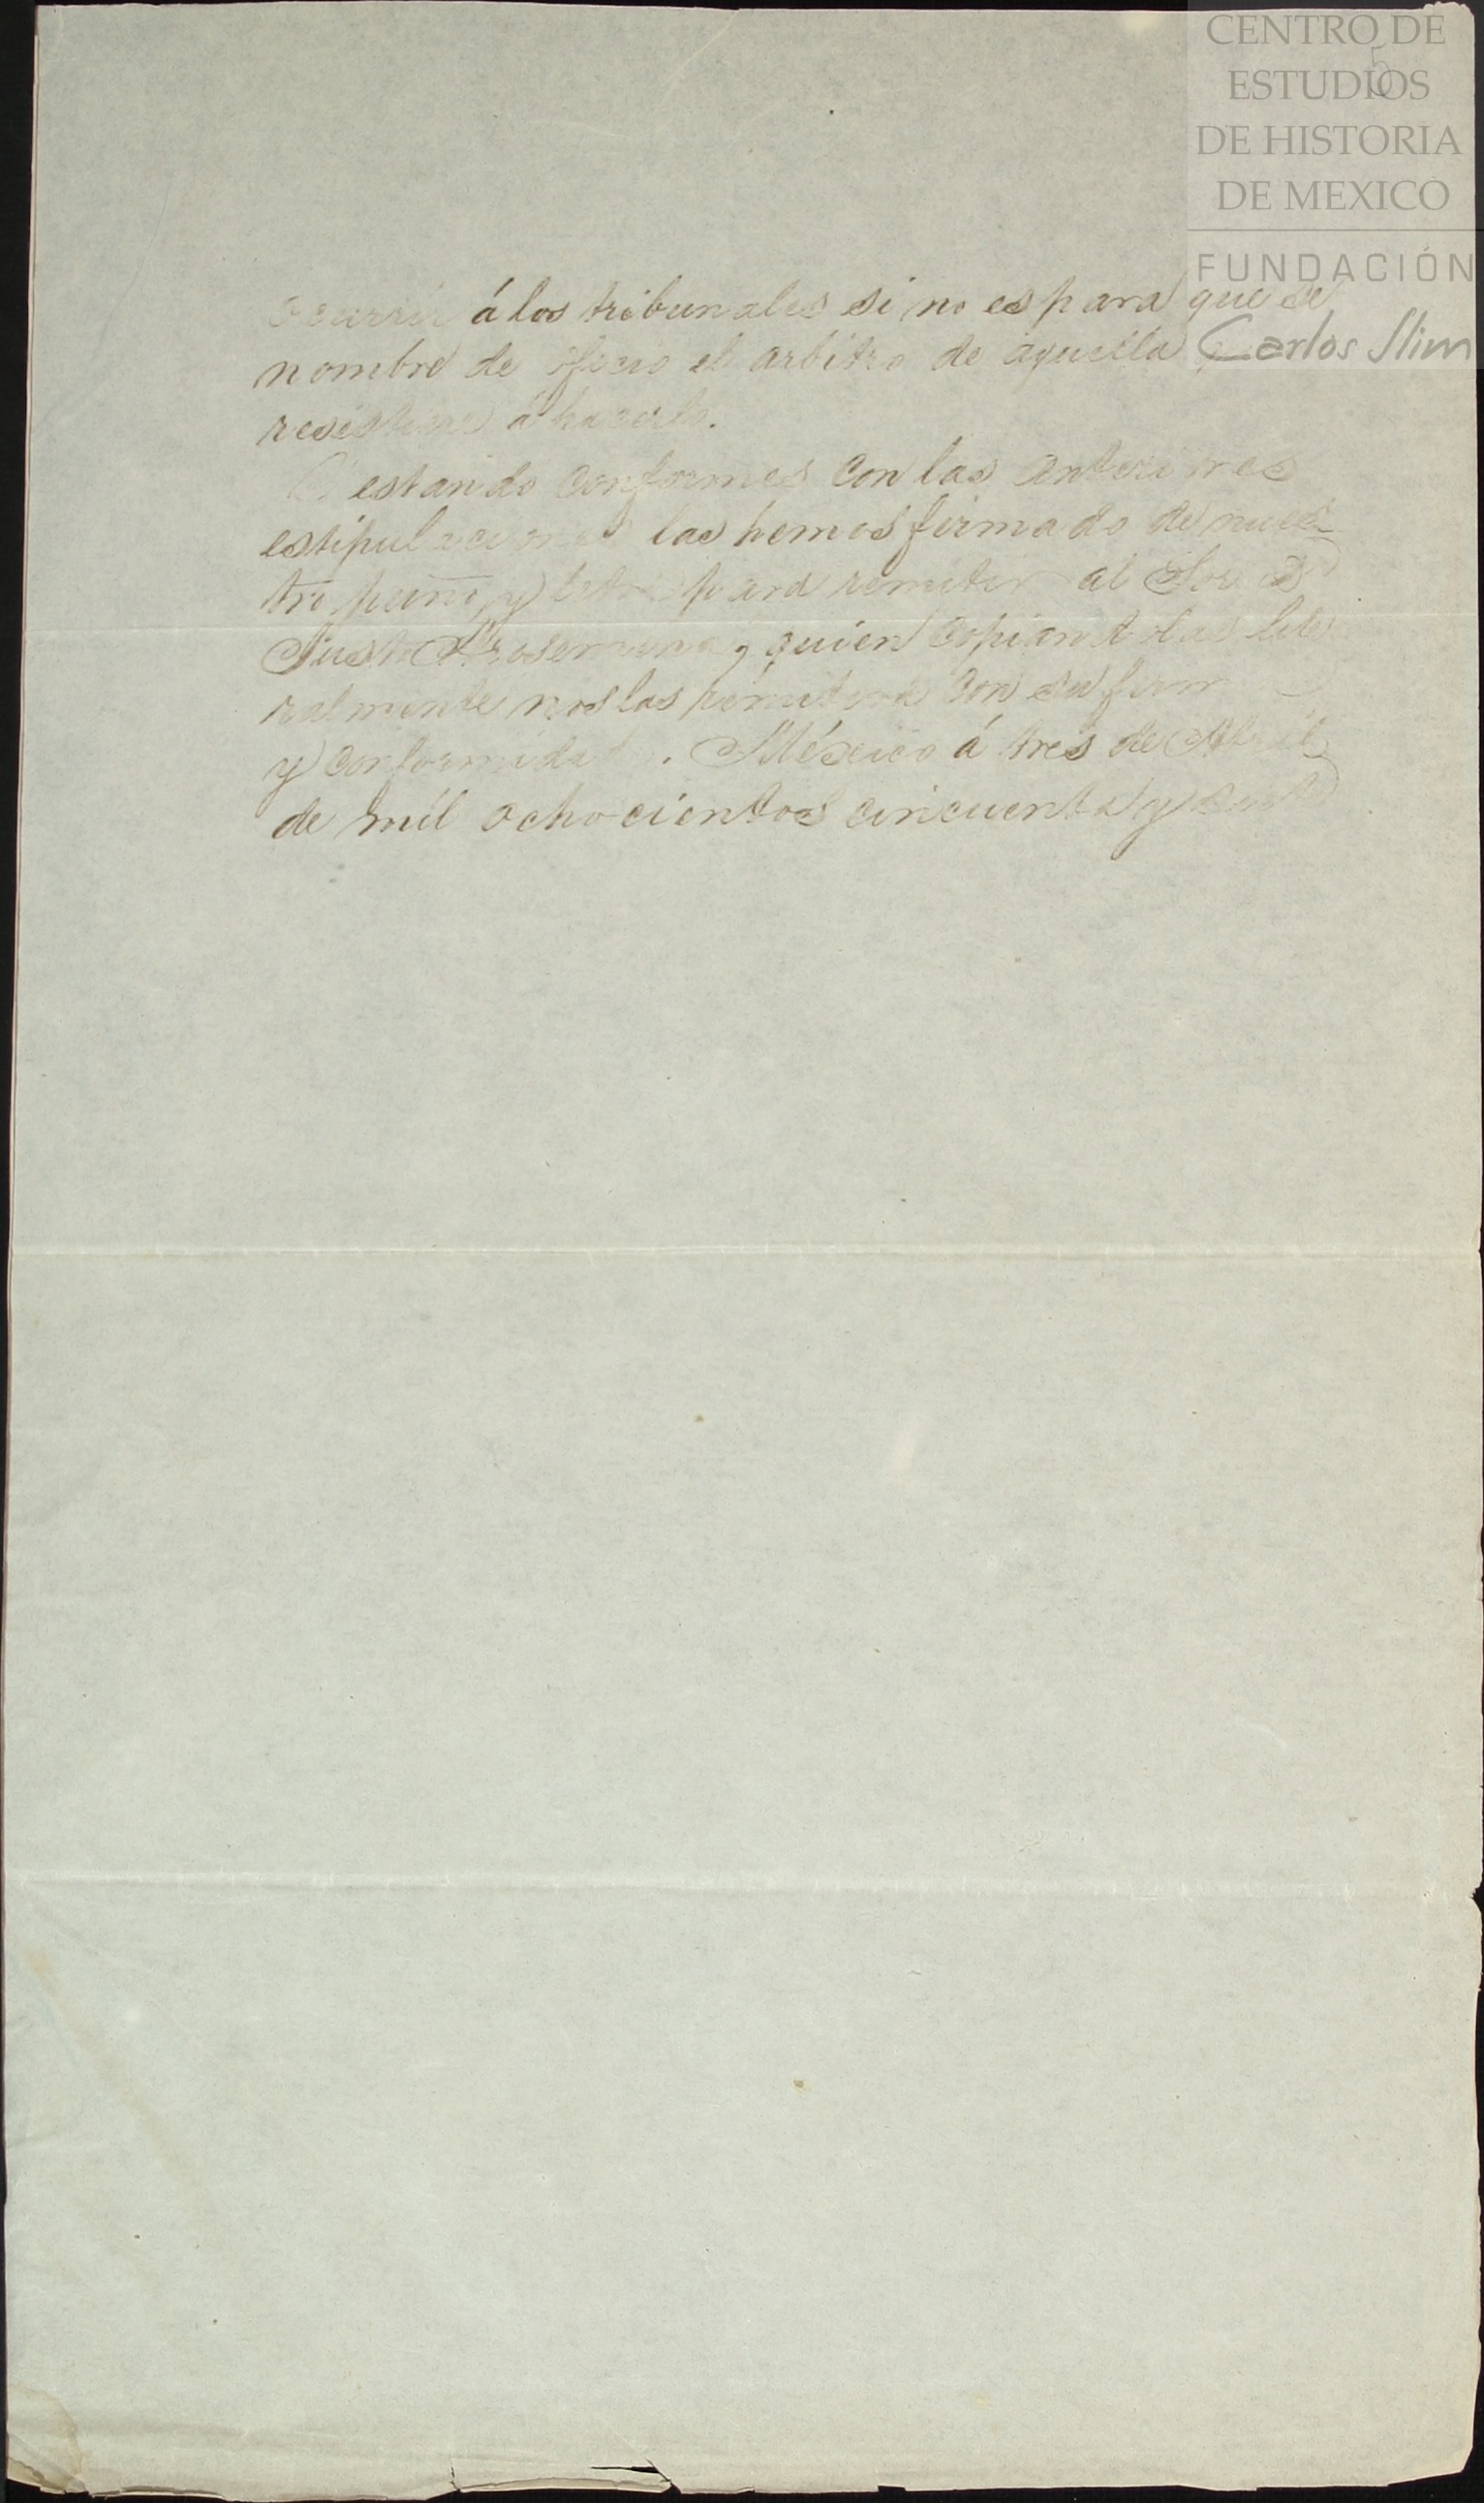 CENTRO DE
ESTUDIOS
DE HISTORIA
DE MEXICO
FUNDACIÓN
Carlos Slim
5
ocurrir á los tribunales si no es para que se
nombre de oficio el arbitro de aquella
á hacerlo.
estando conformes con las anteriores
estipulaciones las hemos firmado de nues-
tro puño y letra para remitir al Sor. D.
Justo Arosemena, quien copiandolas lite
ralmente nos las remitirá con su firma
y conformidad. México á tres de Abril
de mil ochocientos cincuenta y